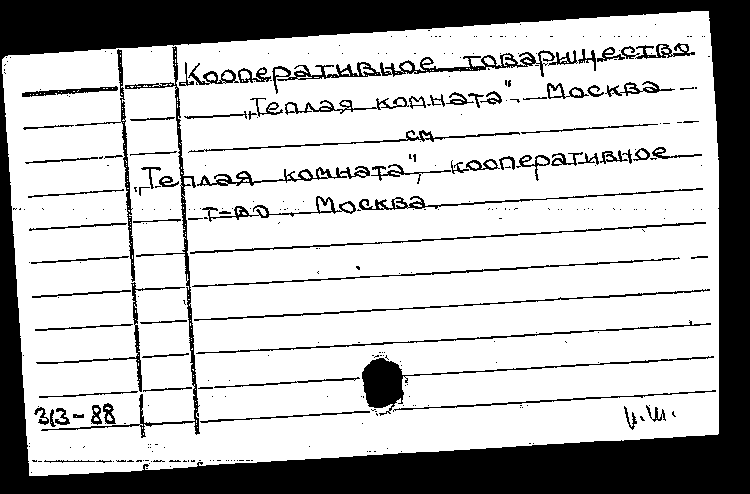 Кооперативное товарищество
„Теплая комната". Москва
см.
„Теплая комната", кооперативное
т-во. Москва.
313-88
И.Ш.